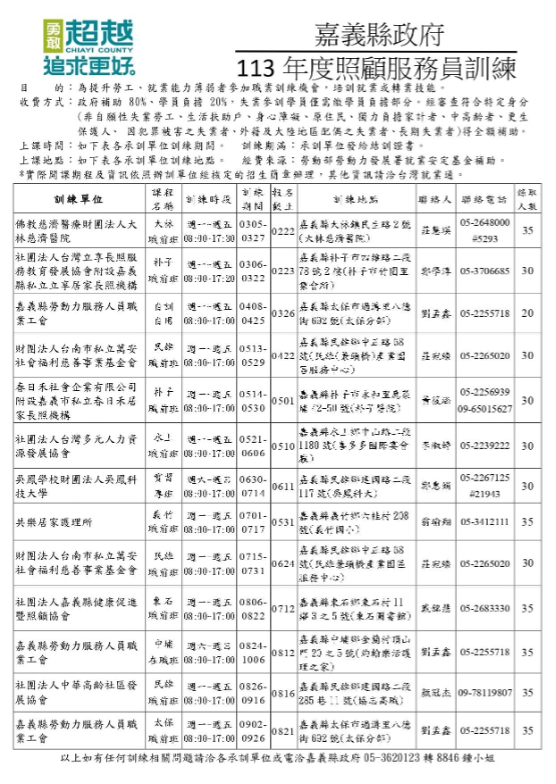 勇敢
超越
CHIAYI COUNTY
追求更好。
嘉義縣政府
113 年度照顧服務員訓練
目 的：為提升勞工、就業能力薄弱者參加職業訓練機會，培訓就業或轉業技能。
收費方式：政府補助 80%、學員負擔 20%，失業參訓學員僅需繳學員負擔部分。經審查符合特定身分
(非自願性失業勞工、生活扶助戶、身心障礙、原住民、獨力負擔家計者、中高齡者、更生
保護人、因犯罪被害之失業者、外籍及大陸地區配偶之失業者、長期失業者)得全額補助。
上課時間：如下表各承訓單位訓練期間。 訓練期滿：承訓單位發給結訓證書。
上課地點：如下表各承訓單位訓練地點。 經費來源：勞動部勞動力發展署就業安定基金補助。
*實際開課期程及資訊依照辦訓單位經核定的招生簡章辦理，其他資訊請洽台灣就業通。
訓練單位 課程名稱 訓練時段 訓練期間 報名截止 訓練地點 聯絡人 聯絡電話 錄取人數
佛教慈濟醫療財團法人大林慈濟醫院 大林職前班 週一~週五 08:00-17:30 0305-0327 0222 嘉義縣大林鎮民生路2號(大林慈濟醫院) 莊慧瑛 05-2648000 #5293 35
社團法人台灣立享長照服務教育發展協會附設嘉義縣私立立享居家長照機構 朴子職前班 週一~週五 08:00-17:20 0306-0322 0223 05-3706685 30
嘉義縣勞動力服務人員職業工會 自訓自用 週一~週五 08:00-17:00 0408-0425 0326 嘉義縣太保市過溝里八德街692號(太保分部) 劉孟鑫 05-2255718 20
財團法人台南市私立萬安社會福利慈善事業基金會 民雄職前班 週一~週五 08:00-17:00 0513-0529 0422 05-2265020 30
春日禾社會企業有限公司附設嘉義市私立春日禾居家長照機構 朴子職前班 週一~週五 08:00-17:00 0514-0530 0501 05-2256939 09-65015627 30
社團法人台灣多元人力資源發展協會 水上職前班 週一~週五 08:00-17:00 0521-0606 0510 05-2239222 30
吳鳳學校財團法人吳鳳科技大學 08:00-17:00 0630-0714 0611 嘉義縣民雄鄉建國路二段117號(吳鳳科大) 05-2267125 #21943 30
共樂居家護理所 義竹職前班 週一~週五 08:00-17:00 0701-0717 0531 嘉義縣義竹鄉六桂村208號(義竹國小) 05-3412111 35
財團法人台南市私立萬安社會福利慈善事業基金會 民雄職前班 週一~週五 08:00-17:00 0715-0731 0624 05-2265020 30
社團法人嘉義縣健康促進暨照顧協會 東石職前班 週一~週五 08:00-17:00 0806-0822 0712 嘉義縣東石鄉東石村11鄰3之5號(東石圖書館) 05-2683330 35
嘉義縣勞動力服務人員職業工會 中埔在職班 08:00-17:00 0824-1006 0812 劉孟鑫 05-2255718 35
社團法人中華高齡社區發展協會 民雄職前班 週一~週五 08:00-17:00 0826-0916 0816 嘉義縣民雄鄉建國路二段285巷11號(協志高職) 09-78119807 35
嘉義縣勞動力服務人員職業工會 太保職前班 週一~週五 08:00-17:00 0902-0926 0821 嘉義縣太保市過溝里八德街692號(太保分部) 劉孟鑫 05-2255718 35
以上如有任何訓練相關問題請洽各承訓單位或電洽嘉義縣政府 05-3620123 轉 8846 鍾小姐